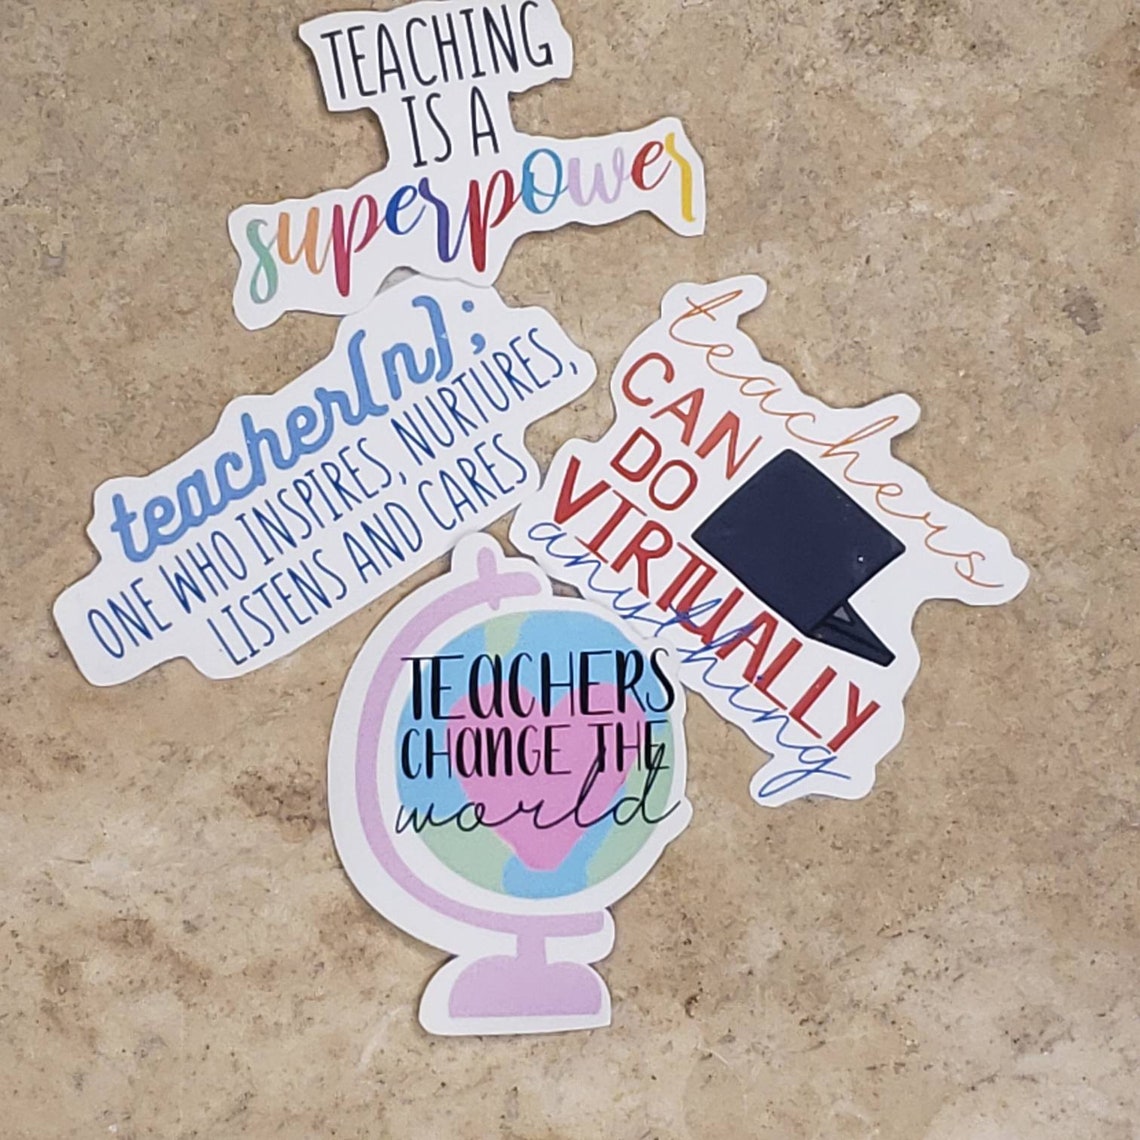 TEACHING
IS A
superpower
teacher[n];
ONE WHO INSPIRES, NURTURES,
LISTENS AND CARES
teachers
CAN
DO
VIRTUALLY
anything
TEACHERS
CHANGE THE
world